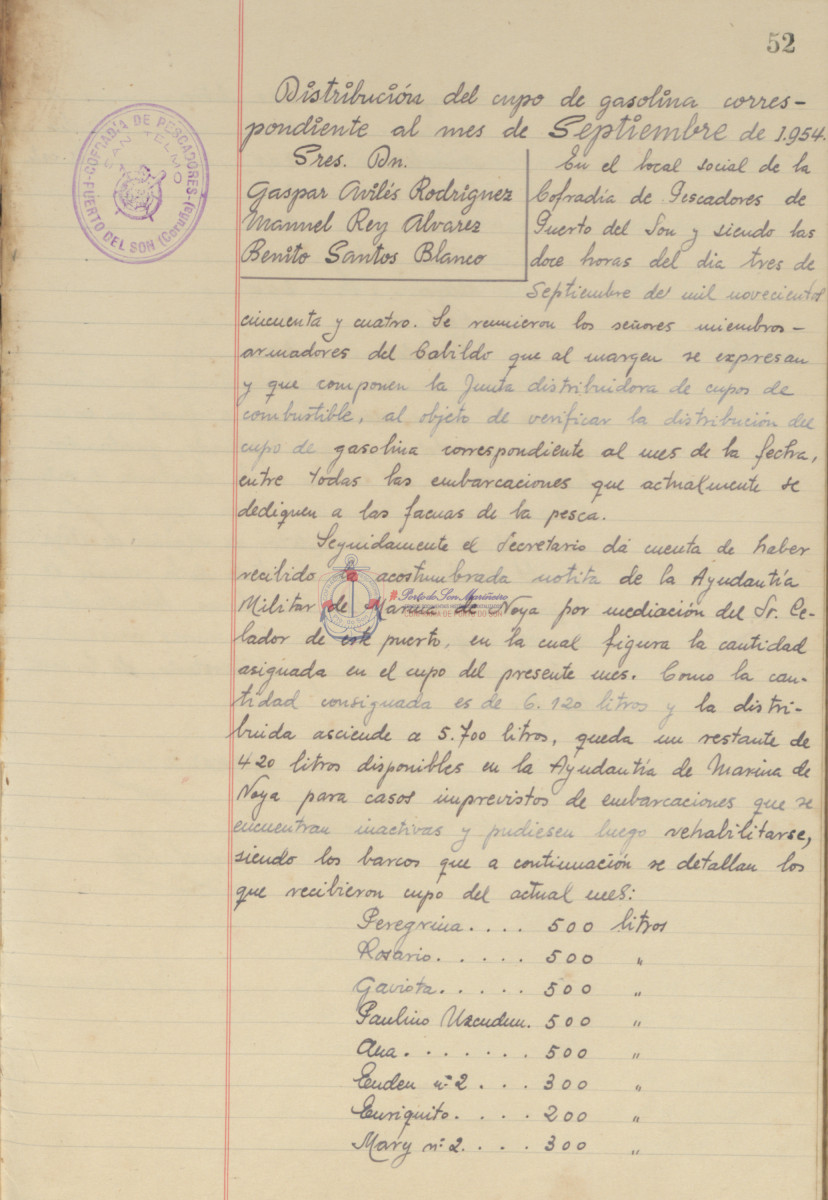 52
Distribución del cupo de gasolina corres-
pondiente al mes de Septiembre de 1.954.
COFRADÍA DE PESCADORES
SAN TELMO
PUERTO DEL SON (Coruña)
Sres. Dn.
Gaspar Avilés Rodriguez
Manuel Rey Alvarez
Benito Santos Blanco
En el local social de la
Cofradía de Pescadores de
Puerto del Son y siendo las
doce horas del dia tres de
Septiembre de mil novecientos
cincuenta y cuatro. Se reunieron los señores miembros-
armadores del Cabildo que al margen se expresan
y que componen la Junta distribuidora de cupos de
combustible, al objeto de verificar la distribución del
cupo de gasolina correspondiente al mes de la fecha,
entre todas las embarcaciones que actualmente se
dediquen a las faenas de la pesca.
Seguidamente el Secretario dá cuenta de haber
recibido la acostumbrada notita de la Ayudantía
Militar de Marina de Noya por mediación del Sr. Ce-
lador de este puerto, en la cual figura la cantidad
asignada en el cupo del presente mes. Como la can-
tidad consignada es de 6.120 litros y la distri-
buida asciende a 5.700 litros, queda un restante de
420 litros disponibles en la Ayudantía de Marina de
Noya para casos imprevistos de embarcaciones que se
encuentran inactivas y pudiesen luego rehabilitarse,
siendo los barcos que a continuación se detallan los
que recibieron cupo del actual mes:
Peregrina.... 500 litros
Rosario..... 500 "
Gaviota..... 500 "
Paulino Uzcudun. 500 "
Ana....... 500 "
Enden nº 2... 300 "
Enriquito.... 200 "
Mary nº 2.... 300 "
Porto do Son Mariñeiro